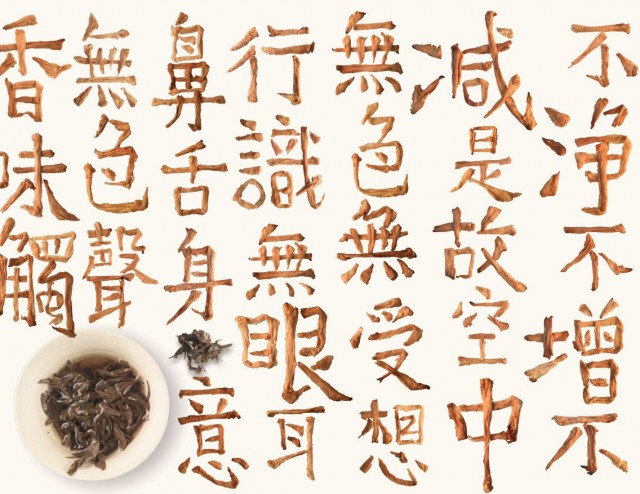 不淨不增不
減是故空中
無色無受想
行識無眼耳
鼻舌身意
無色聲
香味觸